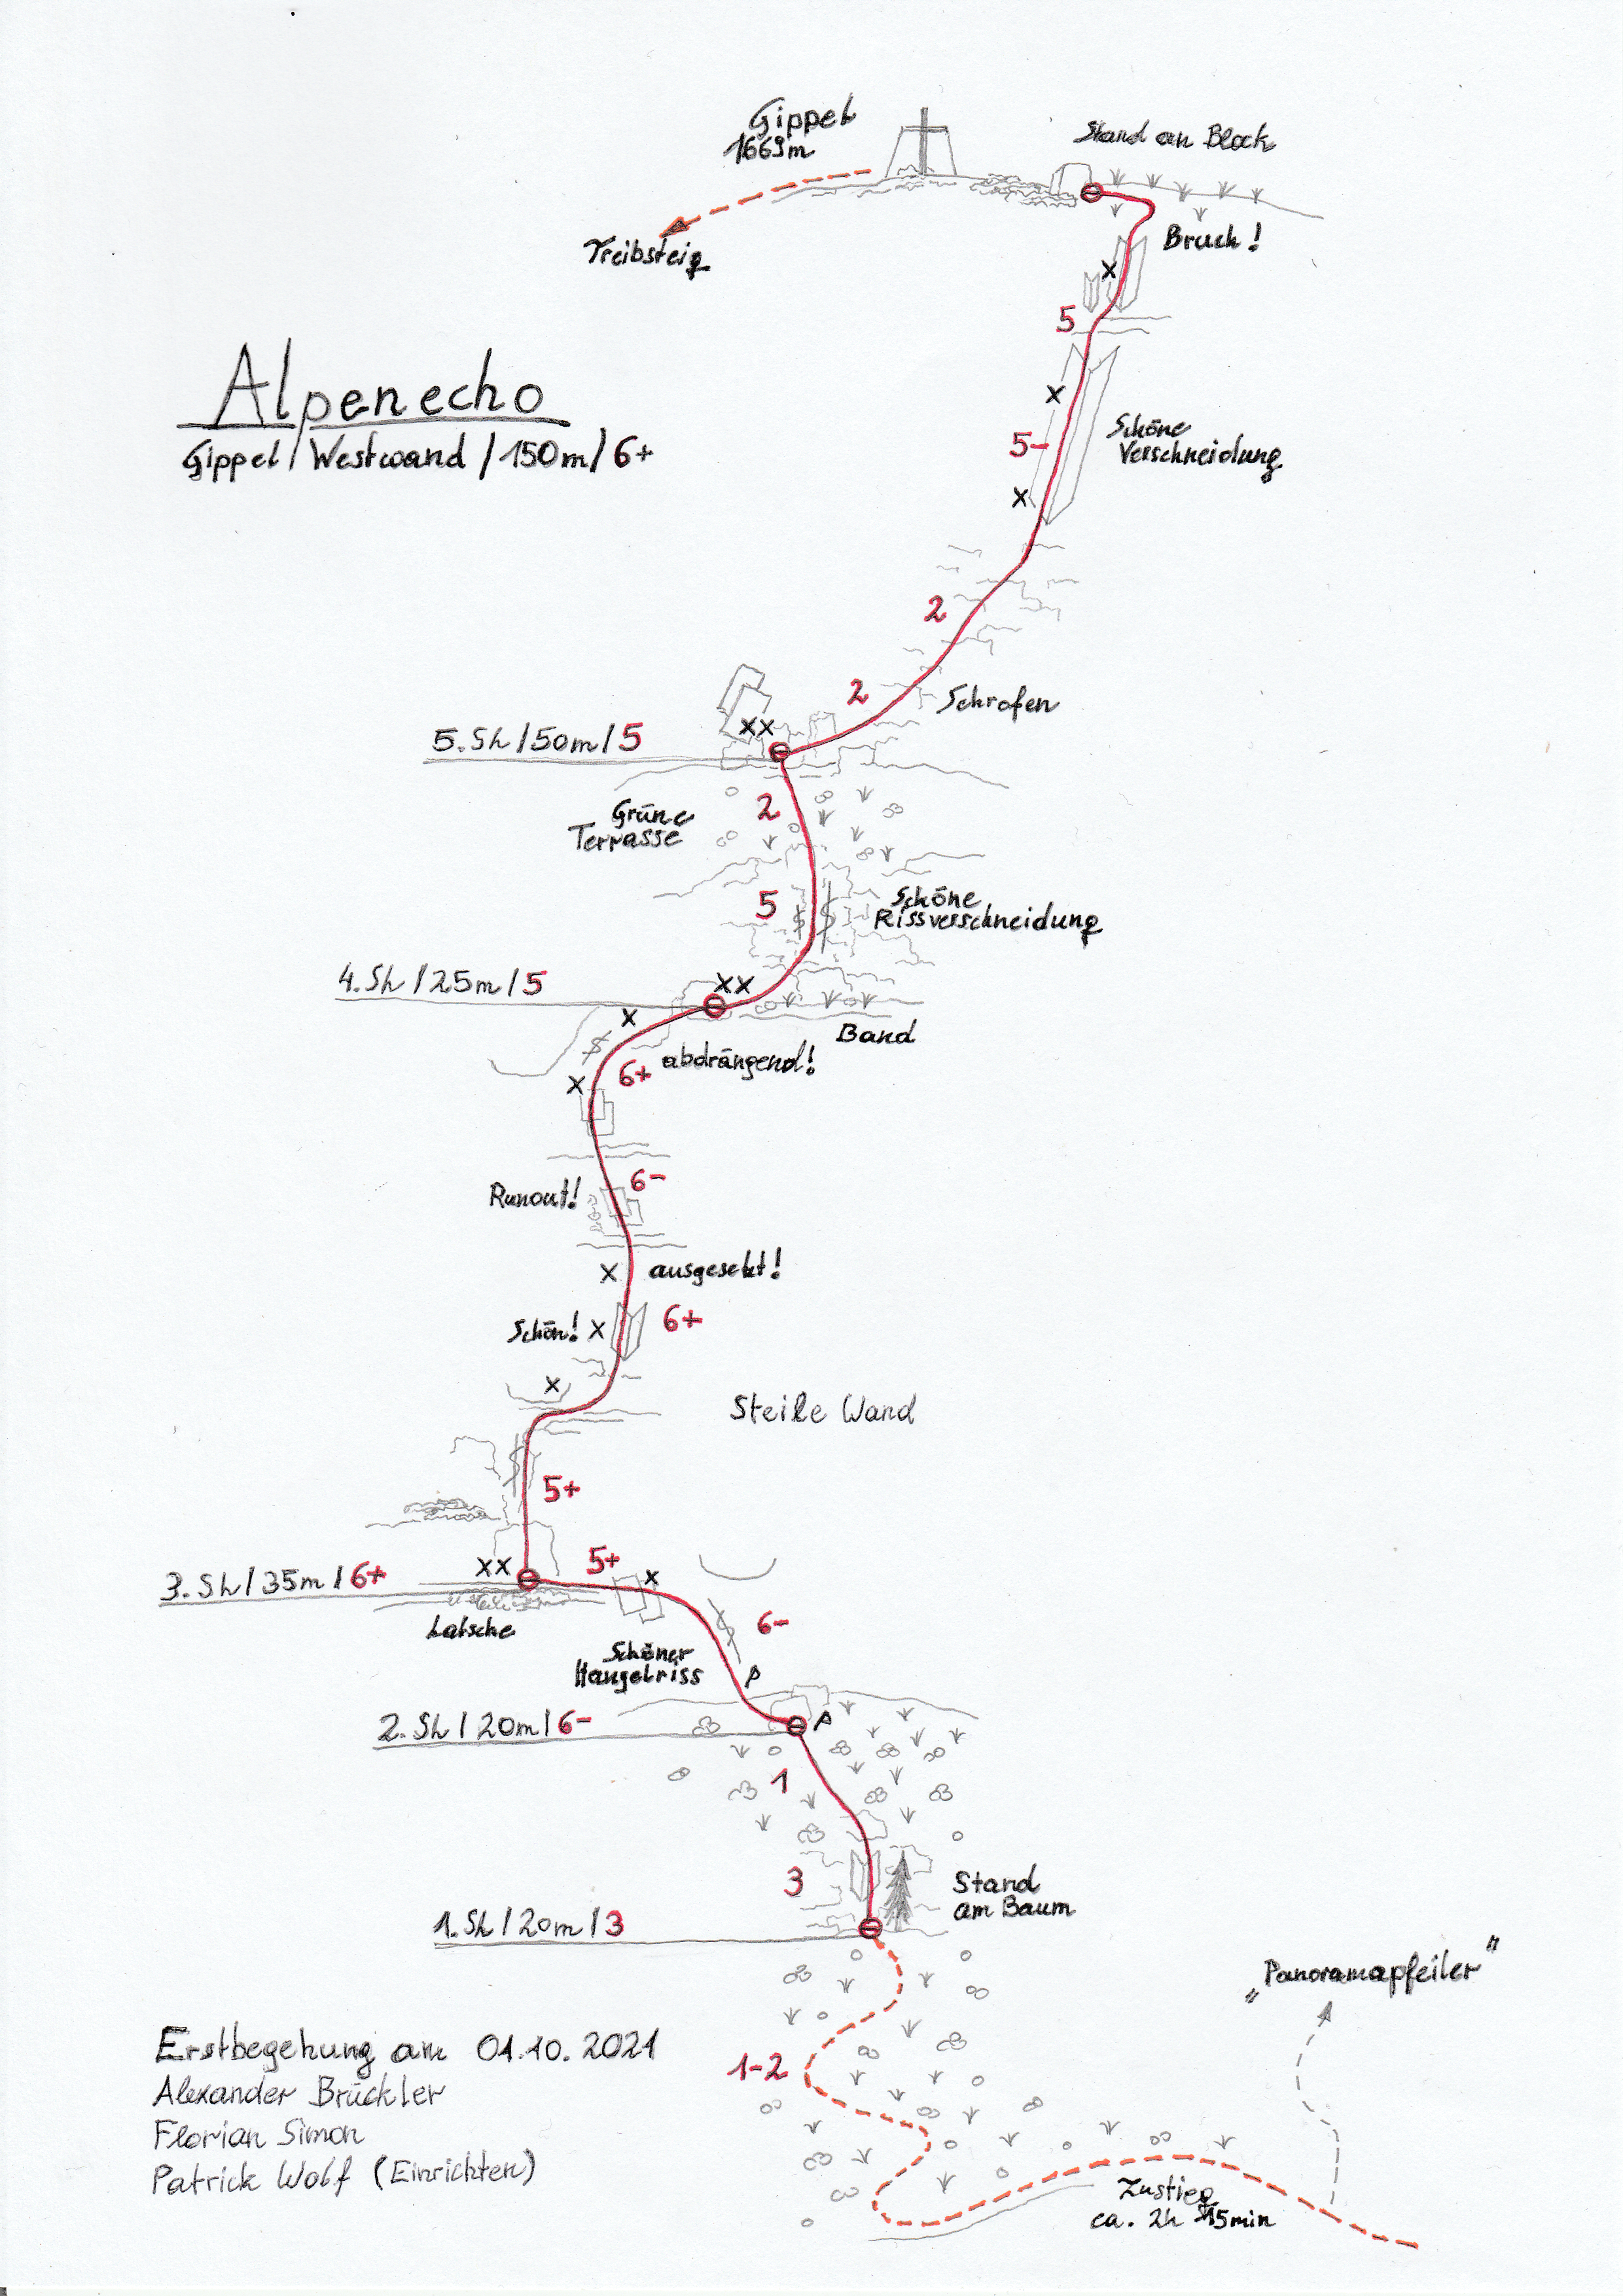 Gippel
1669m
Stand an Block
Bruch!
Treibsteig
x
5
Alpenecho
Gippel/Westwand/150m/6+
x
5-
Schöne
Verschneidung
x
2
2
Schrofen
xx
5.SL/50m/5
2
Grüne
Terrasse
5
Schöne
Rissverschneidung
xx
4.SL/25m/5
x
Band
abdrängend!
x
6+
6-
Runout!
x
ausgesetzt!
6+
Schön!
x
x
Steile Wand
5+
5+
xx
x
3.SL/35m/6+
Latsche
6-
Schöner
Hangelriss
2.SL/20m/6-
1
3
Stand
am Baum
1.SL/20m/3
"Panoramapfeiler"
Erstbegehung am 01.10.2021
1-2
Alexander Brückler
Florian Simon
Patrick Wolf (Einrichten)
Zustieg
ca. 2h 15min